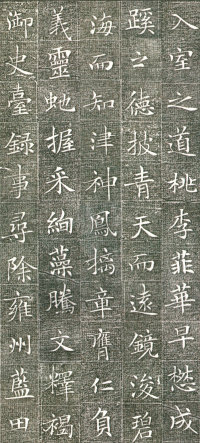 入室之道桃李菲華早懋成
蹊之德披青天而遠鏡浚碧
海而知津神鳳摛章膺仁負
義靈虵握采絢藻騰文釋褐
御史臺録事尋除雍州藍田